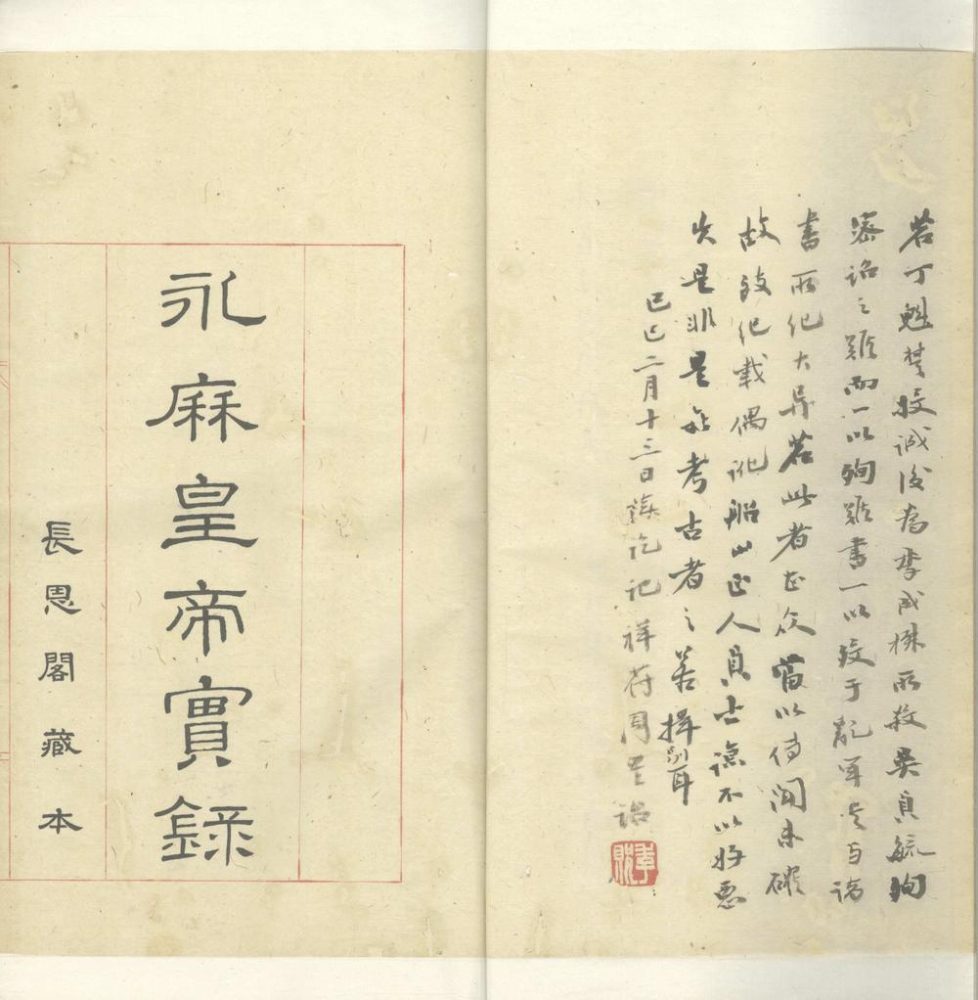 若丁魁楚投誠後為李成棟所殺吳貞毓殉
密詔之難而一以殉難書一以歿于亂軍與諸
書所紀大異若此者甚众葢以傳聞未確
故致紀載偶訛船山正人貞士諒不以好惡
失是非是在考古者之善擇別耳
己巳二月十三日讀訖記祥符周星詒
季貺
永厤皇帝實錄
長恩閣藏本